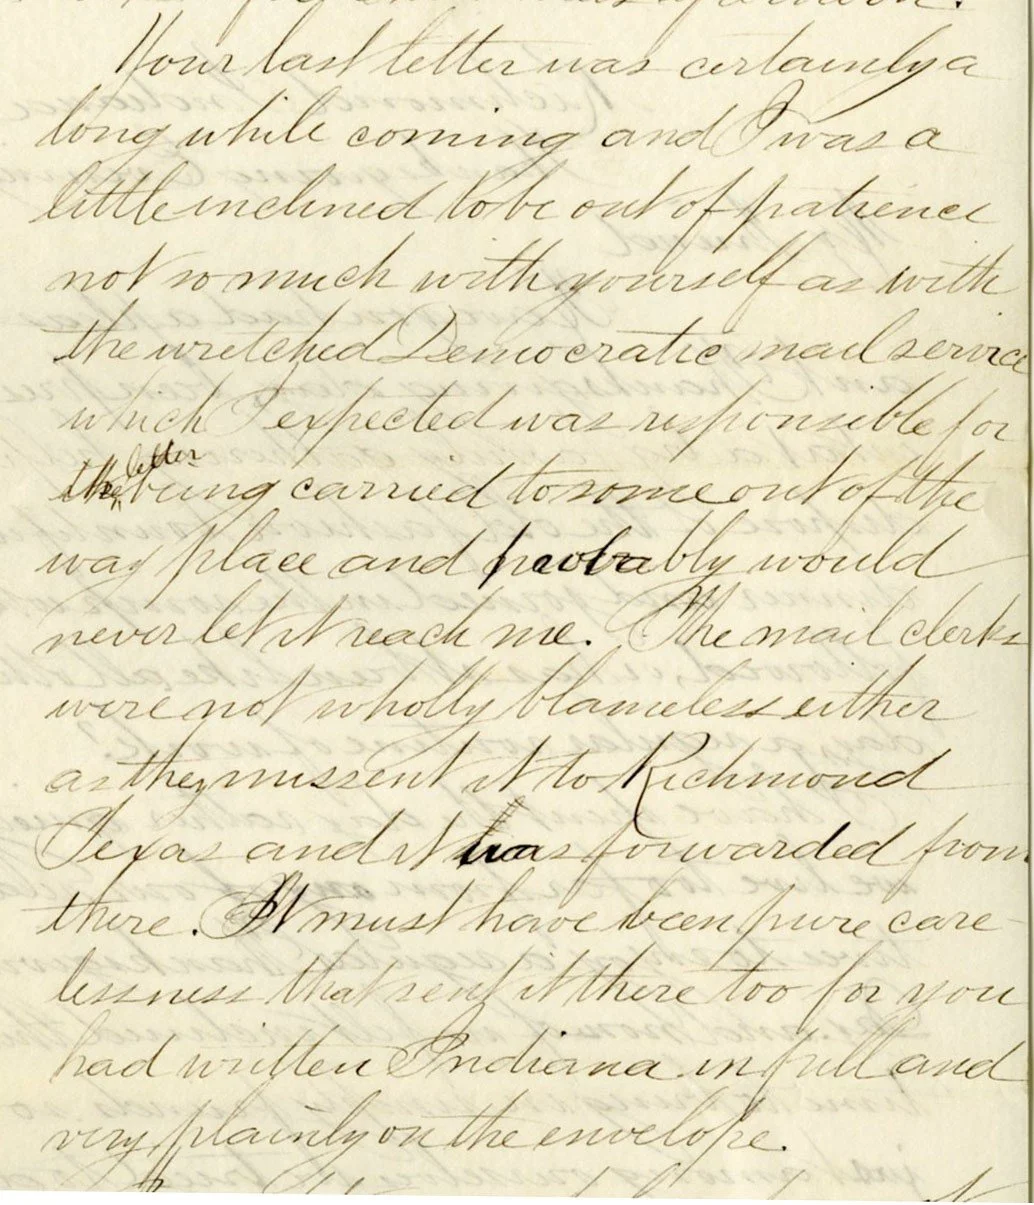 afternoon.
Your last letter was certainly a
long while coming and I was a
little inclined to be out of patience
not so much with yourself as with
the wretched Democratic mail service
which I expected was responsible for
letter
the being carried to some out of the
way place and probably would
never let it reach me. The mail clerks
were not wholly blameless either
as they missent it to Richmond
Texas and it was forwarded from
there. It must have been pure care-
lessness that sent it there too for you
had written Indiana in full and
very plainly on the envelope.